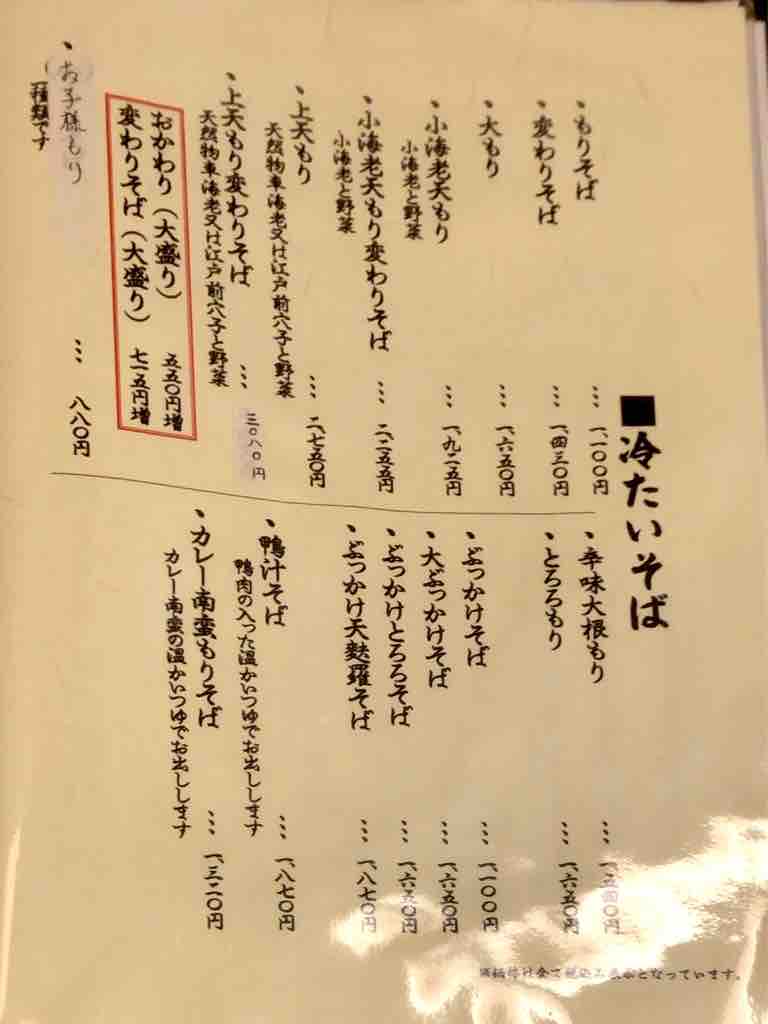 ■冷たいそば
・もりそば … 一、一〇〇円
・変わりそば … 一、四三〇円
・大もり … 一、六五〇円
・小海老天もり … 一、九二五円
小海老と野菜
・小海老天もり変わりそば … 二、二五五円
小海老と野菜
・上天もり … 二、七五〇円
天然物車海老又は江戸前穴子と野菜
・上天もり変わりそば … 三〇八〇円
天然物車海老又は江戸前穴子と野菜
おかわり（大盛り） 五五〇円増
変わりそば（大盛り） 七一五円増
・お子様もり … 八八〇円
（一種類です
・辛味大根もり … 一、五四〇円
・とろろもり … 一、六五〇円
・ぶっかけそば … 一、一〇〇円
・大ぶっかけそば … 一、六五〇円
・ぶっかけとろろそば … 一、六五〇円
・ぶっかけ天麩羅そば … 一、八七〇円
・鴨汁そば … 一、八七〇円
鴨肉の入った温かいつゆでお出しします
・カレー南蛮もりそば … 一、三二〇円
カレー南蛮の温かいつゆでお出しします
※価格は全て税込み表示となっています。